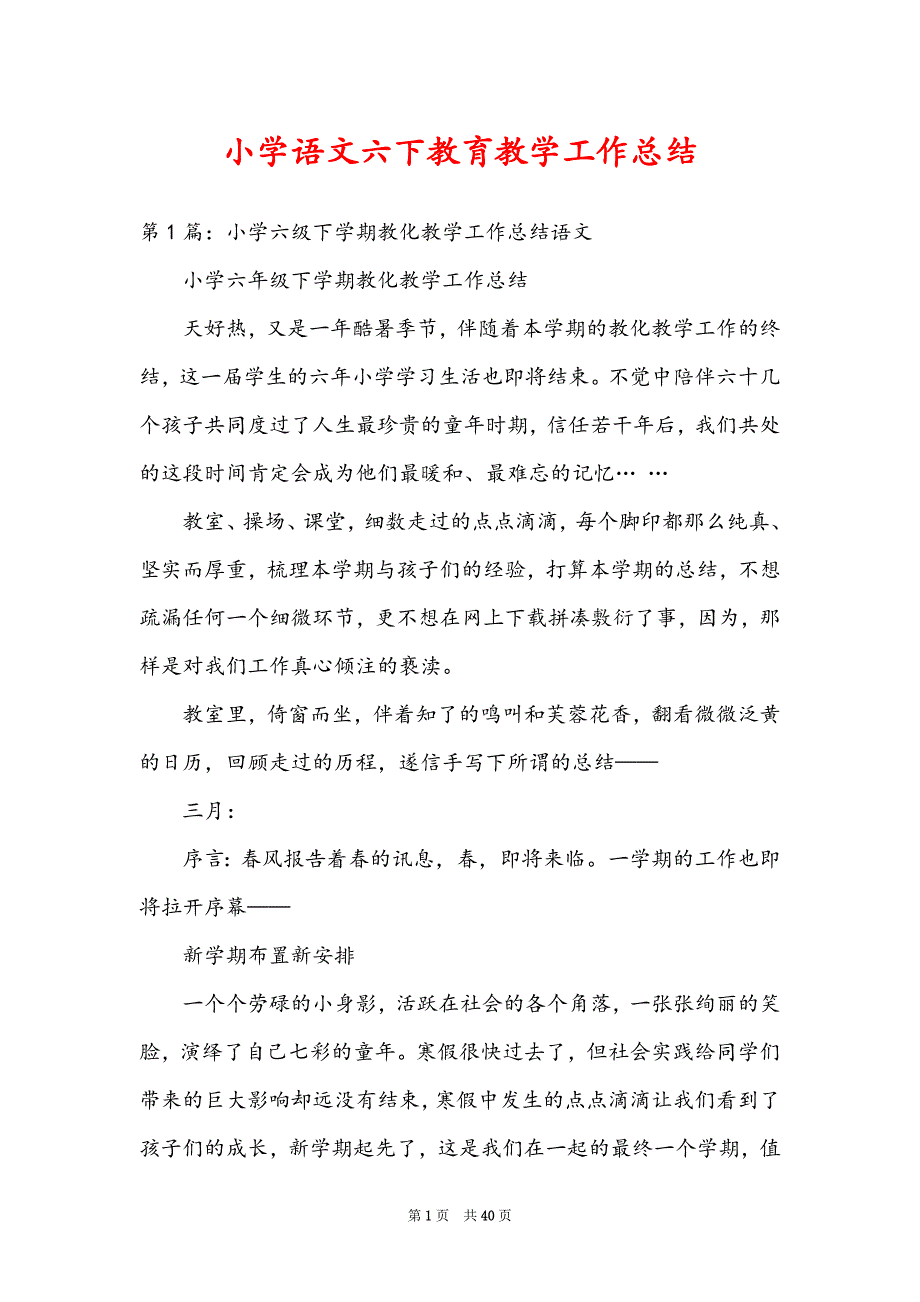 小学语文六下教育教学工作总结
第 1 篇：小学六级下学期教化教学工作总结语文
小学六年级下学期教化教学工作总结
天好热，又是一年酷暑季节，伴随着本学期的教化教学工作的终
结，这一届学生的六年小学学习生活也即将结束。不觉中陪伴六十几
个孩子共同度过了人生最珍贵的童年时期，信任若干年后，我们共处
的这段时间肯定会成为他们最暖和、最难忘的记忆… …
教室、操场、课堂，细数走过的点点滴滴，每个脚印都那么纯真、
坚实而厚重，梳理本学期与孩子们的经验，打算本学期的总结，不想
疏漏任何一个细微环节，更不想在网上下载拼凑敷衍了事，因为，那
样是对我们工作真心倾注的亵渎。
教室里，倚窗而坐，伴着知了的鸣叫和芙蓉花香，翻看微微泛黄
的日历，回顾走过的历程，遂信手写下所谓的总结——
三月：
序言：春风报告着春的讯息，春，即将来临。一学期的工作也即
将拉开序幕——
新学期布置新安排
一个个劳碌的小身影，活跃在社会的各个角落，一张张绚丽的笑
脸，演绎了自己七彩的童年。寒假很快过去了，但社会实践给同学们
带来的巨大影响却远没有结束，寒假中发生的点点滴滴让我们看到了
孩子们的成长，新学期起先了，这是我们在一起的最终一个学期，值
第 1 页 共 40 页